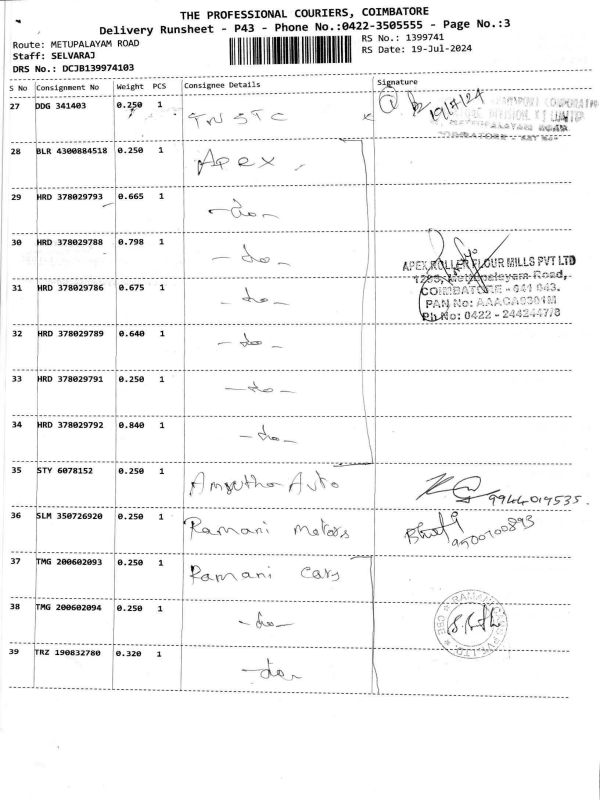 THE PROFESSIONAL COURIERS, COIMBATORE
Delivery Runsheet - P43 - Phone No.:0422-3505555 - Page No.:3
Route: METUPALAYAM ROAD
RS No.: 1399741
Staff: SELVARAJ
RS Date: 19-Jul-2024
DRS No.: DCJB139974103
S No Consignment No Weight PCS Consignee Details Signature
27 DDG 341403 0.250 1 TNSTC 19/7/24
28 BLR 4300884518 0.250 1 Apex
29 HRD 378029793 0.665 1 -do-
30 HRD 378029788 0.798 1 -do-
APEX ROLLER FLOUR MILLS PVT LTD
31 HRD 378029786 0.675 1 -do-
1285, Mettupalayam Road,
COIMBATORE - 641 043.
PAN No: AAACA9301M
Ph No: 0422 - 2442447/8
32 HRD 378029789 0.640 1 -do-
33 HRD 378029791 0.250 1 -do-
34 HRD 378029792 0.840 1 -do-
35 STY 6078152 0.250 1 Amrutha Auto 9944019535.
36 SLM 350726920 0.250 1 Ramani Motors
37 TMG 200602093 0.250 1 Ramani Cars
38 TMG 200602094 0.250 1 -do-
39 TRZ 190832780 0.320 1 -do-